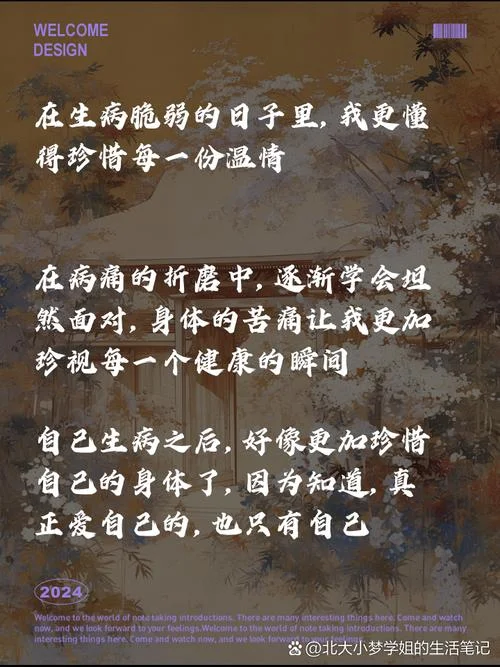 WELCOME
DESIGN
在生病脆弱的日子里，我更懂
得珍惜每一份温情
在病痛的折磨中，逐渐学会坦
然面对，身体的苦痛让我更加
珍视每一个健康的瞬间
自己生病之后，好像更加珍惜
自己的身体了，因为知道，真
正爱自己的，也只有自己
2024
Welcome to the world of note taking introductions. There are many interesting things here. Come and watch
now, and we look forward to your feelings.Welcome to the world of note taking introductions. There are many
interesting things here. Come and watch now, and we look forward to your feelings.
@北大小梦学姐的生活笔记